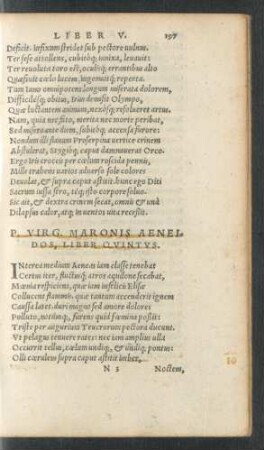 LIBER V. 197
Deficit. Infixum stridet sub pectore uulnus.
Ter sese attollens, cubitóq; innixa, leuauit:
Ter reuoluta toro est, oculisq; errantibus alto
Quæsiuit cœlo lucem, ingemuitq; reperta.
Tum Iuno omnipotens longum miserata dolorem,
Difficilésq; obitus, Irim demisit Olympo,
Quæ luctantem animum, nexósq; resolueret artus.
Nam, quia nec fato, merita nec morte peribat,
Sed misera ante diem, subitóq; accensa furore:
Nondum illi flauum Proserpina uertice crinem
Abstulerat, Stygióq; caput damnauerat Orco.
Ergo Iris croceis per cœlum roscida pennis,
Mille trahens uarios aduerso sole colores
Deuolat, & supra caput astitit. hunc ego Diti
Sacrum iussa fero, téq; isto corpore soluo.
Sic ait, & dextra crinem secat, omnis & unà
Dilapsus calor, atq; in uentos uita recessit.
P. VIRG. MARONIS AENEI-
DOS, LIBER QVINTVS.
INterea medium Aeneas iam classe tenebat
Certus iter, fluctusq; atros aquilone secabat,
Mœnia respiciens, quæ iam infelicis Elisæ
Collucent flammis. quæ tantum accenderit ignem
Caussa latet. duri magno sed amore dolores
Polluto, notúmq;, furens quid fœmina possit:
Triste per augurium Teucrorum pectora ducunt.
Vt pelagus tenuere rates: nec iam amplius ulla
Occurrit tellus, cœlum undiq;, & undiq; pontus:
Olli cæruleus supra caput astitit imber,
N 3 Noctem,